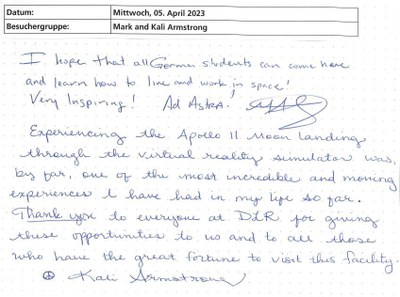 Datum: Mittwoch, 05. April 2023
Besuchergruppe: Mark and Kali Armstrong
I hope that all German students can come here
and learn how to live and work in space!
Very Inspiring! Ad Astra!
Experiencing the Apollo 11 Moon landing
through the virtual reality simulator was,
by far, one of the most incredible and moving
experiences I have had in my life so far.
Thank you to everyone at DLR for giving
these opportunities to us and to all those
who have the great fortune to visit this facility.
☮ Kali Armstrong